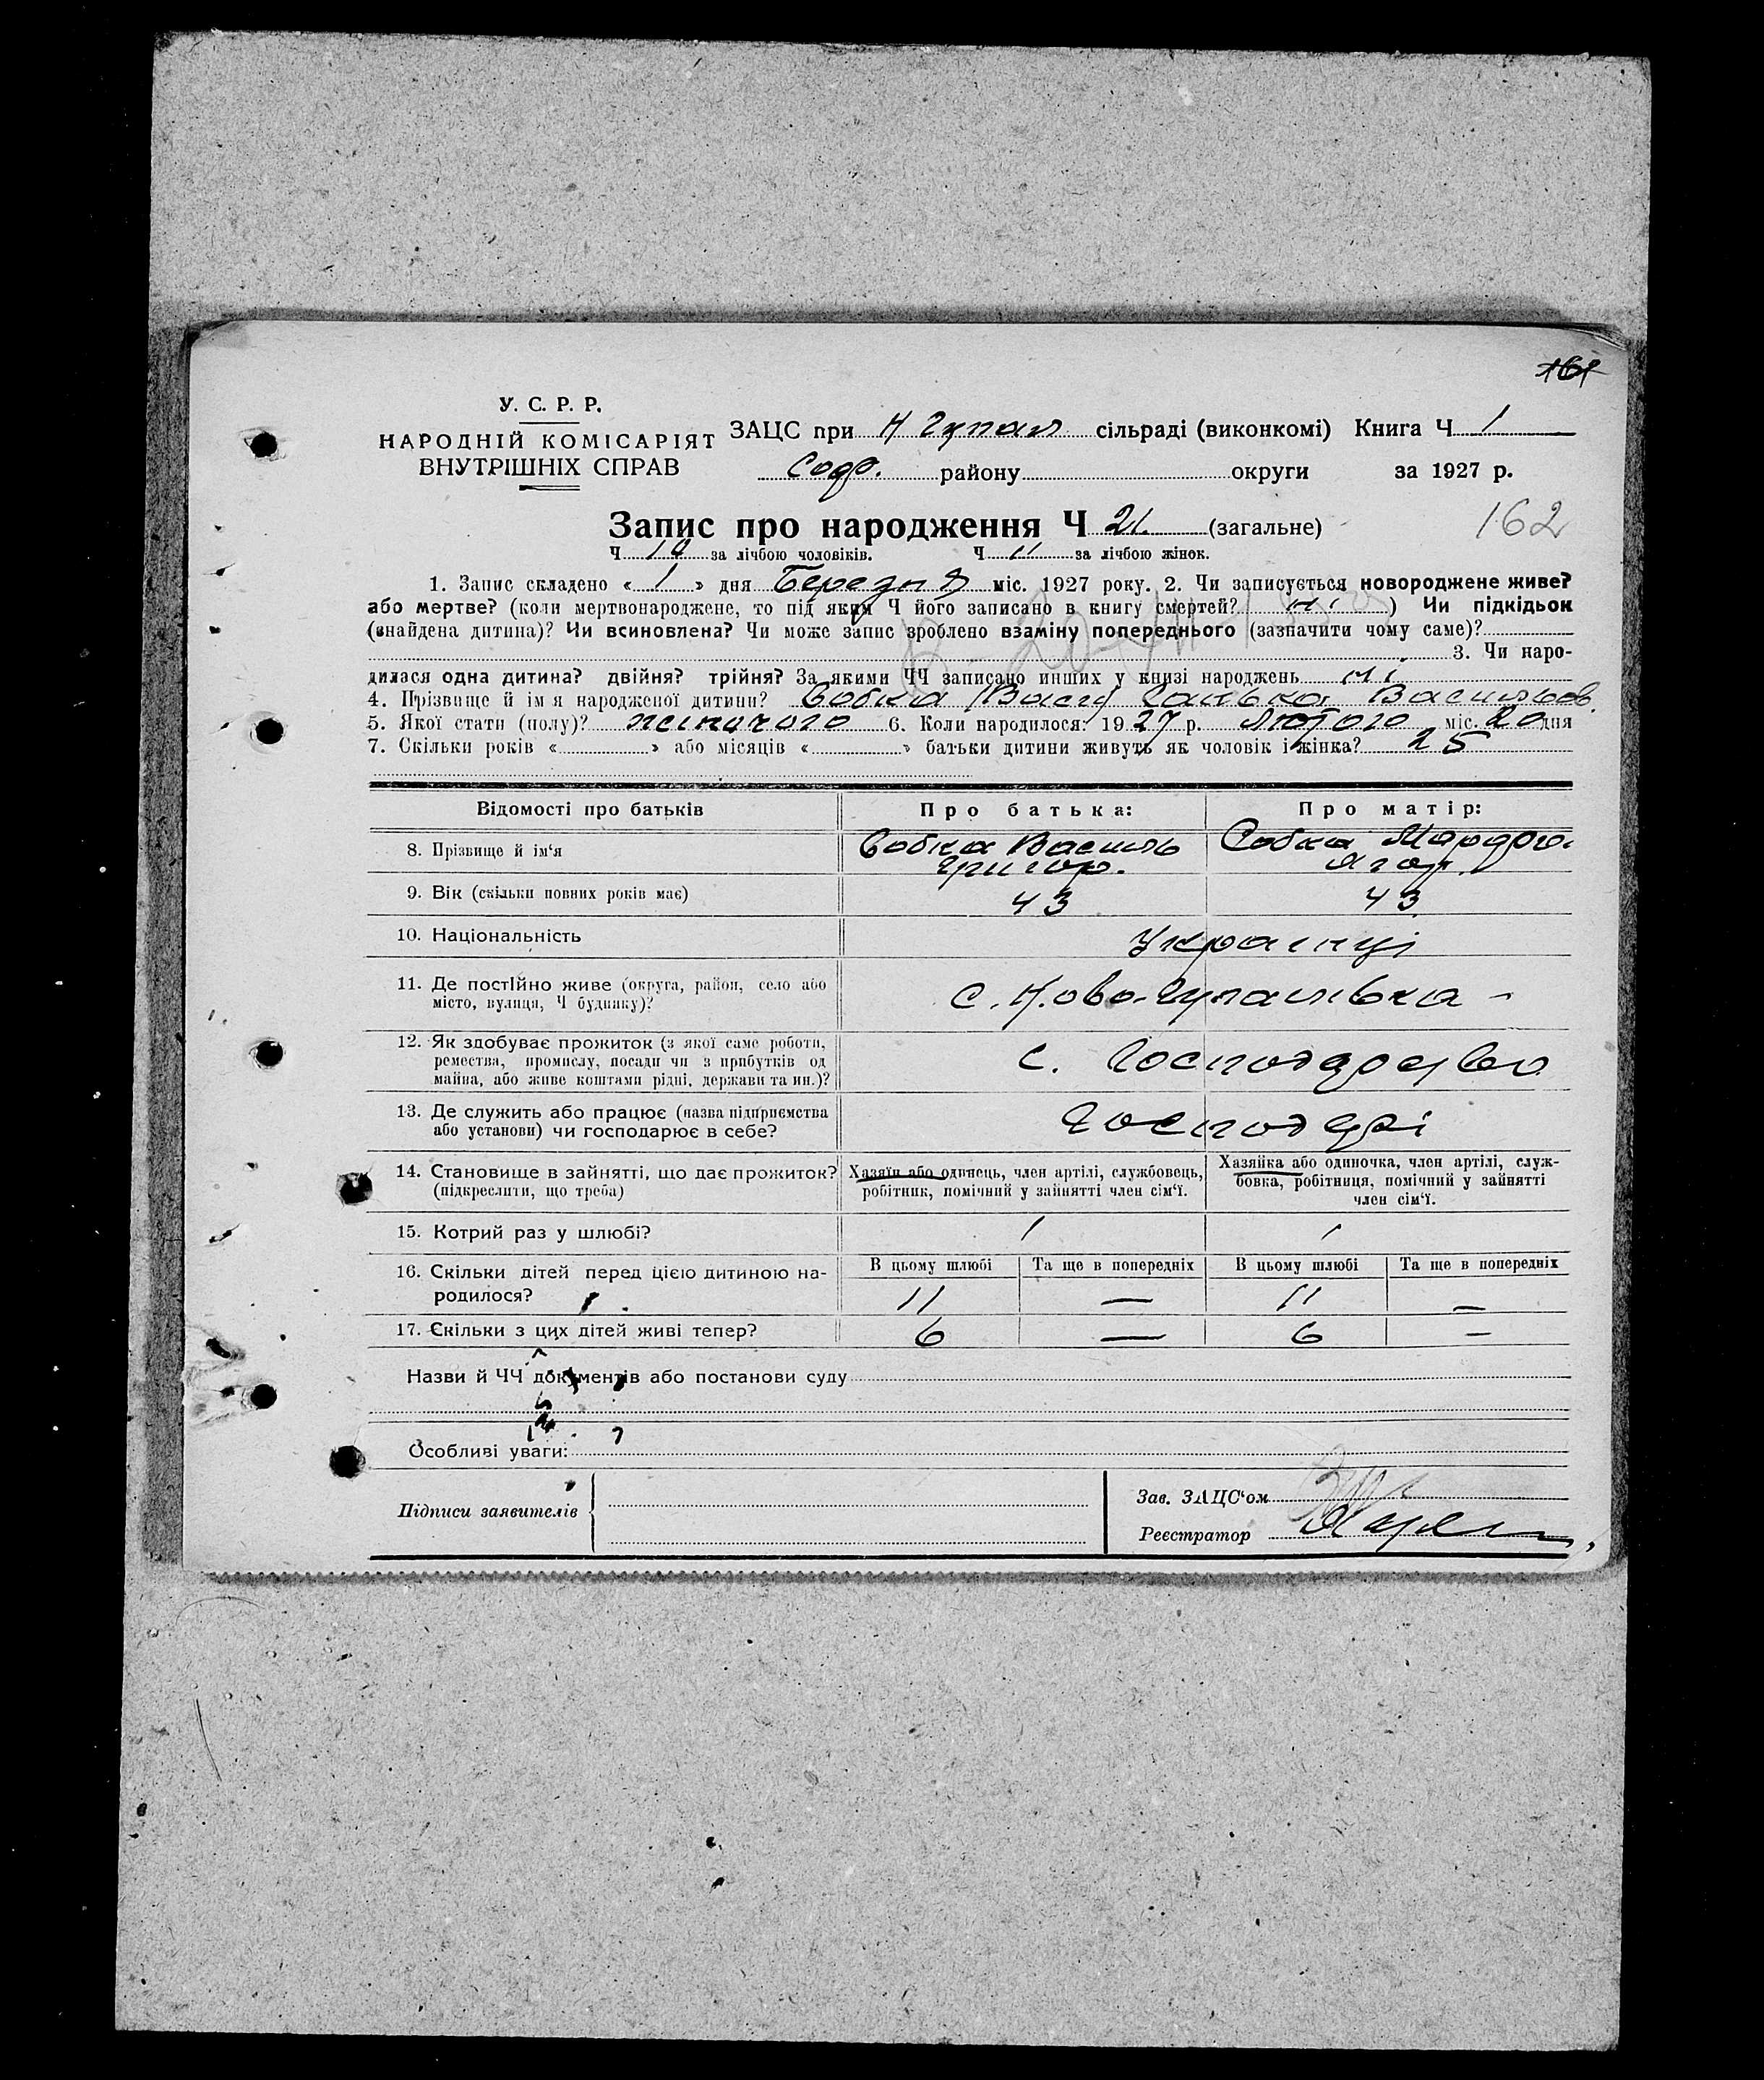 161
У. С. Р. Р.
НАРОДНІЙ КОМІСАРІЯТ
ВНУТРІШНІХ СПРАВ
ЗАЦС при Н Гупал сільраді (виконкомі) Книга Ч 1
Соф. району округи за 1927 р.
Запис про народження Ч 21 (загальне)
162
Ч 10 за лічбою чоловіків. Ч 11 за лічбою жінок.
1. Запис складено « 1 » дня Березня міс. 1927 року. 2. Чи записується новороджене живе?
або мертве? (коли мертвонароджене, то під яким Ч його записано в книгу смертей? ні ) Чи підкідьок
(знайдена дитина)? Чи всиновлена? Чи може запис зроблено взаміну попереднього (зазначити чому саме)?
3. Чи наро-
дилася одна дитина? двійня? трійня? За якими ЧЧ записано инших у книзі народжень ні
4. Прізвище й ім'я народженої дитини? Собка Васильов.
5. Якої стати (полу)? жіночого 6. Коли народилося? 1927 р. Лютого міс. 20 дня
7. Скільки років « » або місяців « » батьки дитини живуть як чоловік і жінка? 25
Відомості про батьків Про батька: Про матір:
8. Прізвище й ім'я Собка Василь Григор. Собка
9. Вік (скільки повних років має) 43 43
10. Національність Українці
11. Де постійно живе (округа, район, село або
місто, вулиця, Ч будинку)? с. Ново-Гупалівка -
12. Як здобуває прожиток (з якої саме роботи,
ремества, промислу, посади чи з прибутків од
майна, або живе коштами рідні, держави та ин.)? С. Господарство
13. Де служить або працює (назва підприємства
або установи) чи господарює в себе? Господарі
14. Становище в зайнятті, що дає прожиток?
(підкреслити, що треба)
Хазяїн або одинець, член артілі, службовець,
робітник, помічний у зайнятті член сім'ї.
Хазяйка або одиночка, член артілі, служ-
бовка, робітниця, помічний у зайнятті
член сім'ї.
15. Котрий раз у шлюбі? 1 1
В цьому шлюбі Та ще в попередніх В цьому шлюбі Та ще в попередніх
16. Скільки дітей перед цією дитиною на-
родилося? 11 — 11 —
17. Скільки з цих дітей живі тепер? 6 — 6 —
Назви й ЧЧ документів або постанови суду
Особливі уваги:
Підписи заявителів
Зав. ЗАЦС'ом
Реєстратор